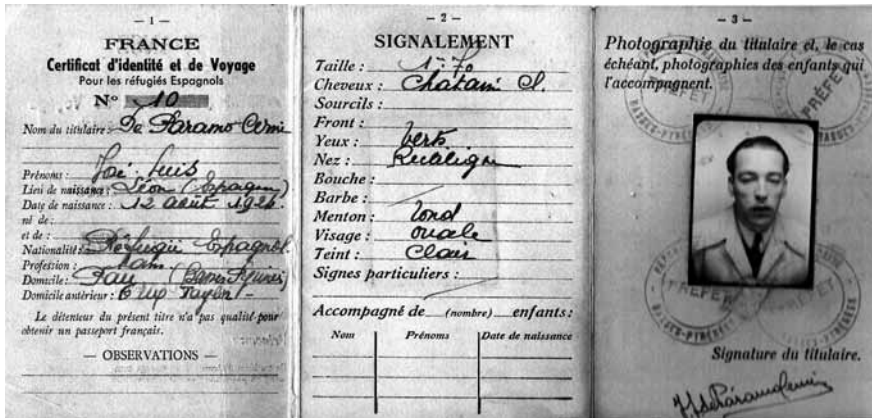 — 1 —
FRANCE
Certificat d'identité et de Voyage
Pour les réfugiés Espagnols
N° 10
Nom du titulaire : De Paramo Cerni
Prénoms : José Luis
Lieu de naissance : Léon (Espagne)
Date de naissance : 12 août 192
né de :
et de :
Nationalité : Réfugié Espagnol
Profession : sans
Domicile : Pau
Domicile antérieur : 6 rue Taylor -
Le détenteur du présent titre n'a pas qualité pour
obtenir un passeport français.
— OBSERVATIONS —
— 2 —
SIGNALEMENT
Taille : 1m70
Cheveux : Chatain Cl.
Sourcils :
Front :
Yeux : verts
Nez : Rectiligne
Bouche :
Barbe :
Menton : rond
Visage : ovale
Teint : Clair
Signes particuliers :
Accompagné de (nombre) enfants :
Nom Prénoms Date de naissance
— 3 —
Photographie du titulaire et, le cas
échéant, photographies des enfants qui
l'accompagnent.
PRÉFET
BASSES-PYRÉNÉES
Signature du titulaire.